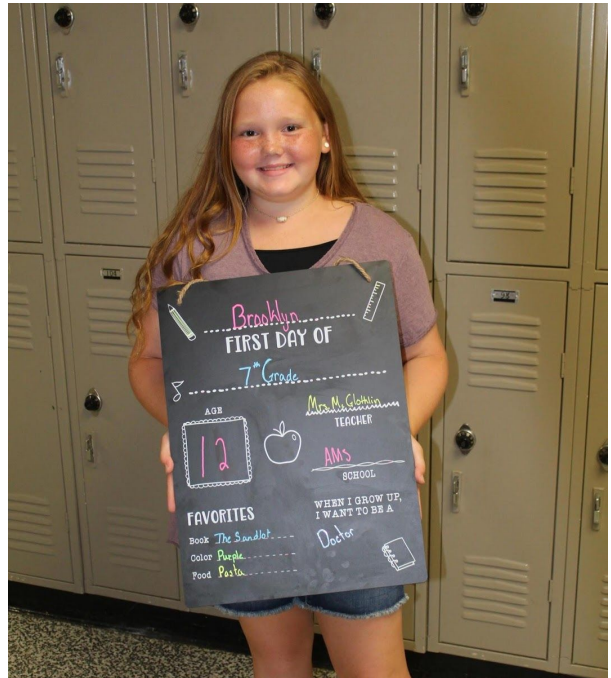 Brooklyn
FIRST DAY OF
7th Grade
AGE
12
Mrs. McGlothlin
TEACHER
AMS
SCHOOL
FAVORITES
Book The Sandlot
Color Purple
Food Pasta
WHEN I GROW UP,
I WANT TO BE A
Doctor